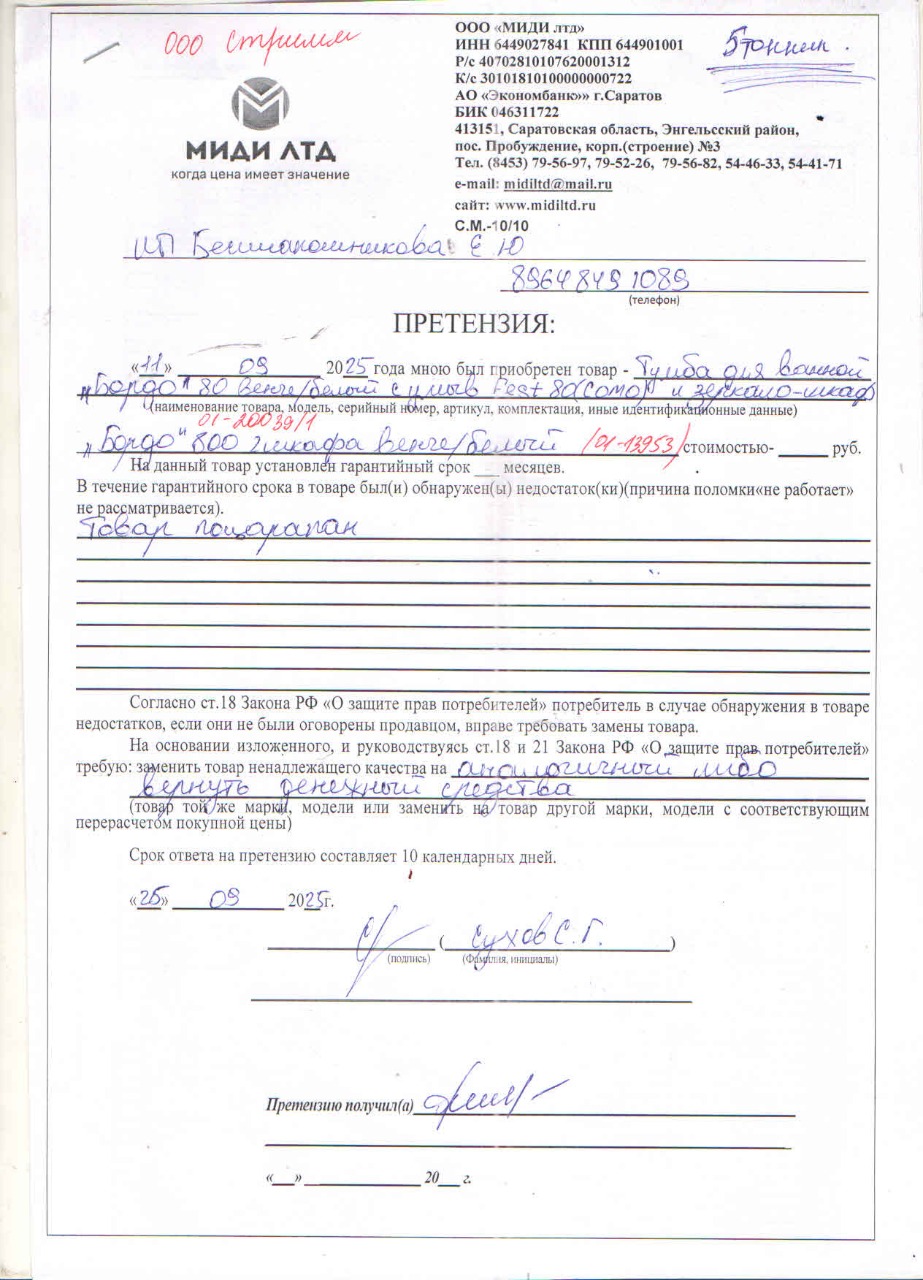 ООО Стримм
ООО «МИДИ лтд»
ИНН 6449027841 КПП 644901001
Р/с 40702810107620001312
К/с 30101810100000000722
АО «Экономбанк»» г.Саратов
БИК 046311722
413151, Саратовская область, Энгельсский район,
пос. Пробуждение, корп.(строение) №3
Тел. (8453) 79-56-97, 79-52-26, 79-56-82, 54-46-33, 54-41-71
e-mail: midiltd@mail.ru
сайт: www.midiltd.ru
С.М.-10/10
МИДИ ЛТД
когда цена имеет значение
ИП Е Ю
89648491089
(телефон)
ПРЕТЕНЗИЯ:
«11» 09 2025 года мною был приобретен товар - Тумба для ванной
"Бордо" 80 венге/белый с умыв Fest 80(Como) и зеркало-шкаф
(наименование товара, модель, серийный номер, артикул, комплектация, иные идентификационные данные)
01-20039/1
"Бордо" 800 2шкафа венге/белый /01-13953/ стоимостью- ______ руб.
На данный товар установлен гарантийный срок ___ месяцев.
В течение гарантийного срока в товаре был(и) обнаружен(ы) недостаток(ки)(причина поломки«не работает»
не рассматривается).
Товар поцарапан
Согласно ст.18 Закона РФ «О защите прав потребителей» потребитель в случае обнаружения в товаре
недостатков, если они не были оговорены продавцом, вправе требовать замены товара.
На основании изложенного, и руководствуясь ст.18 и 21 Закона РФ «О защите прав потребителей»
требую: заменить товар ненадлежащего качества на аналогичный либо
вернуть денежный средства
(товар той же марки, модели или заменить на товар другой марки, модели с соответствующим
перерасчетом покупной цены)
Срок ответа на претензию составляет 10 календарных дней.
«25» 09 2025г.
(Сухов С.Г.)
(подпись) (Фамилия, инициалы)
Претензию получил(а)
«__» ____________ 20__ г.